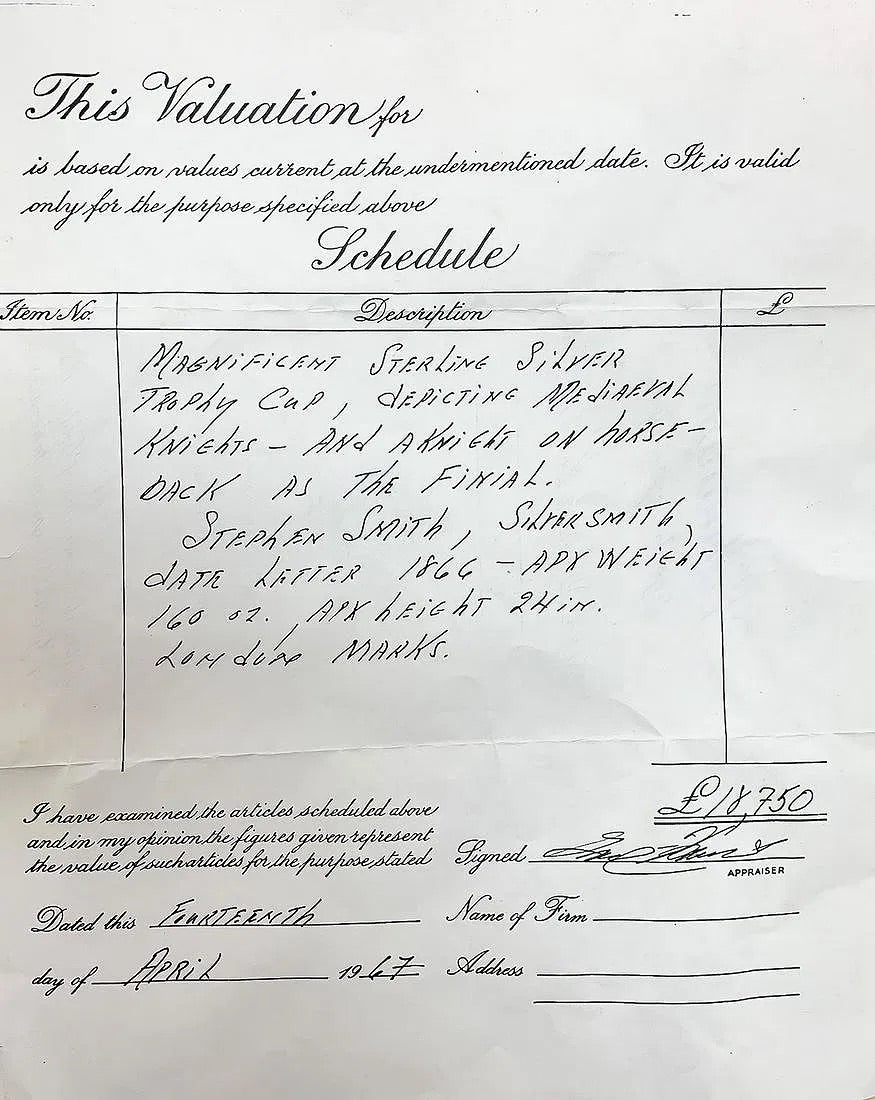 This Valuation for
is based on values current at the undermentioned date. It is valid
only for the purpose specified above
Schedule
Item No. Description £
MAGNIFICENT STERLING SILVER
TROPHY CUP, DEPICTING MEDIAEVAL
KNIGHTS – AND A KNIGHT ON HORSE-
BACK AS THE FINIAL.
STEPHEN SMITH, SILVERSMITH,
DATE LETTER 1866 – APX WEIGHT
160 OZ. APX HEIGHT 24 in.
LONDON MARKS.
£18,750
I have examined the articles scheduled above
and in my opinion the figures given represent
the value of such articles for the purpose stated
Signed
APPRAISER
Dated this FOURTEENTH
Name of Firm
day of APRIL 1967
Address